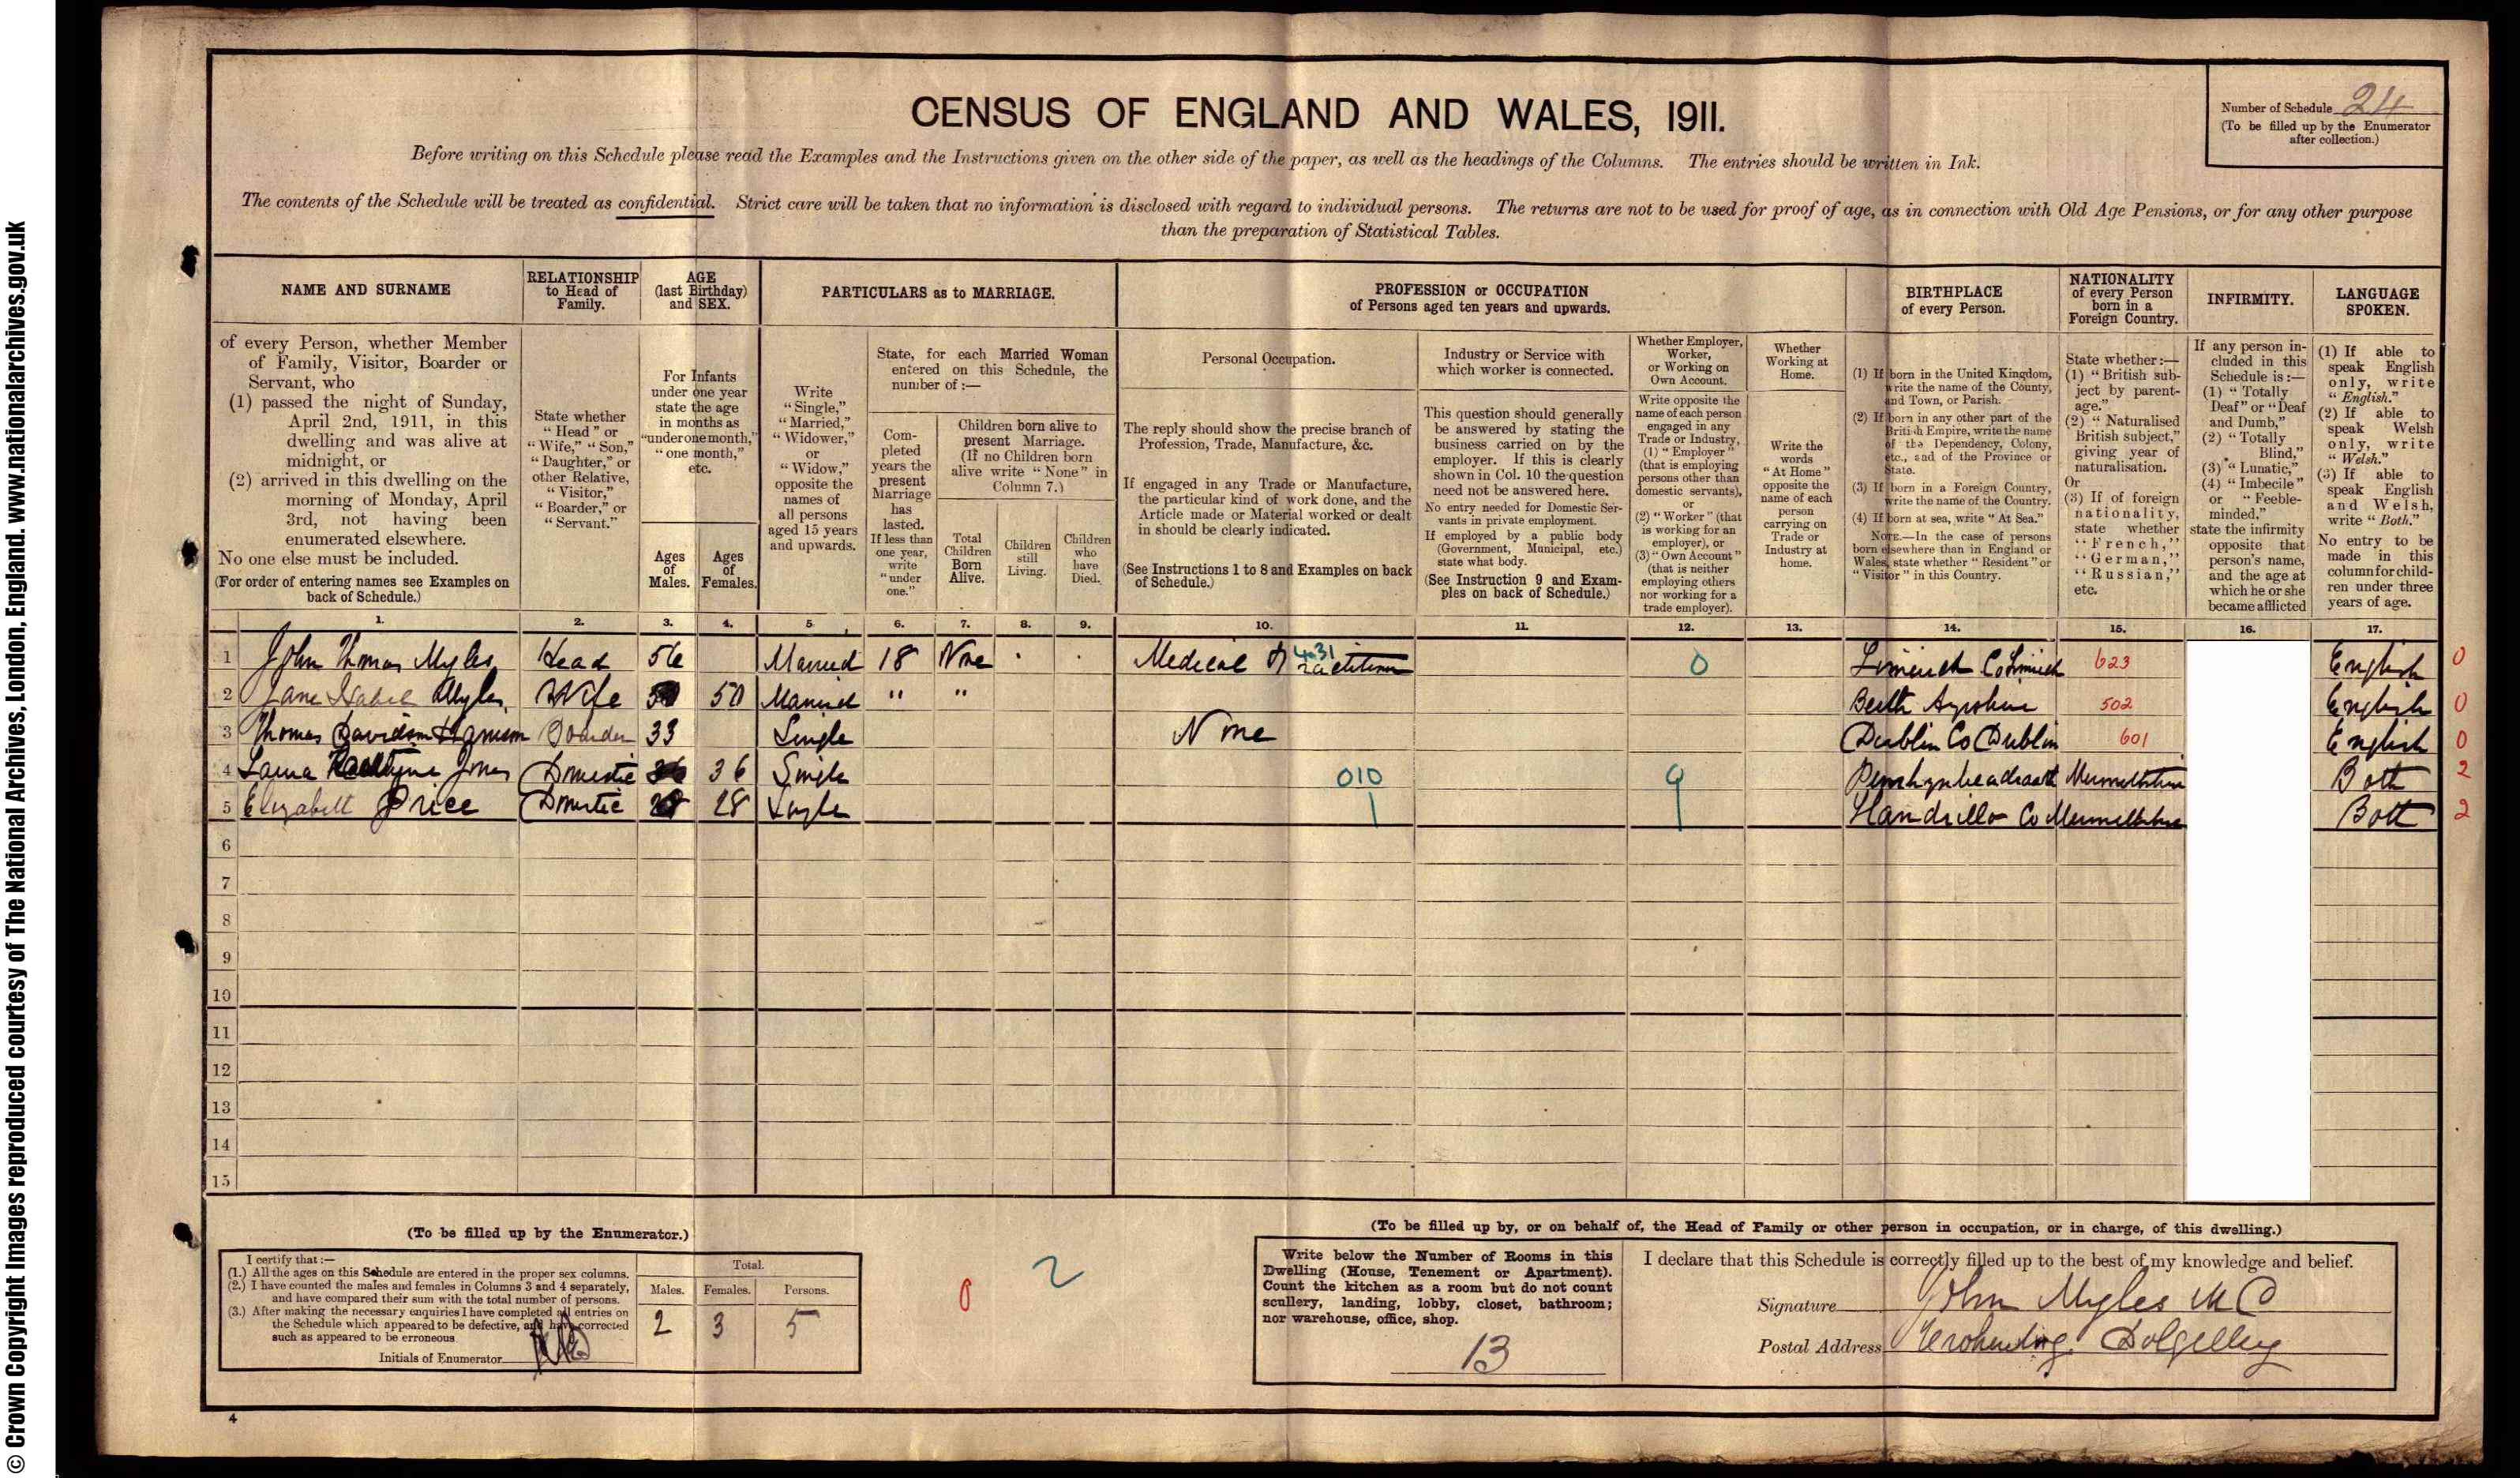 © Crown Copyright Images reproduced courtesy of The National Archives, London, England. www.nationalarchives.gov.uk
CENSUS OF ENGLAND AND WALES, 1911.
Number of Schedule 24
(To be filled up by the Enumerator
after collection.)
Before writing on this Schedule please read the Examples and the Instructions given on the other side of the paper, as well as the headings of the Columns. The entries should be written in Ink.
The contents of the Schedule will be treated as confidential. Strict care will be taken that no information is disclosed with regard to individual persons. The returns are not to be used for proof of age, as in connection with Old Age Pensions, or for any other purpose
than the preparation of Statistical Tables.
NAME AND SURNAME
of every Person, whether Member
of Family, Visitor, Boarder or
Servant, who
(1) passed the night of Sunday,
April 2nd, 1911, in this
dwelling and was alive at
midnight, or
(2) arrived in this dwelling on the
morning of Monday, April
3rd, not having been
enumerated elsewhere.
No one else must be included.
(For order of entering names see Examples on
back of Schedule.)
RELATIONSHIP
to Head of
Family.
State whether
"Head" or
"Wife," "Son,"
"Daughter," or
other Relative,
"Visitor,"
"Boarder," or
"Servant."
AGE
(last Birthday)
and SEX.
For Infants
under one year
state the age
in months as
"under one month,"
"one month,"
etc.
Ages
of
Males.
Ages
of
Females.
PARTICULARS as to MARRIAGE.
Write
"Single,"
"Married,"
"Widower,"
or
"Widow,"
opposite the
names of
all persons
aged 15 years
and upwards.
State, for each Married Woman
entered on this Schedule, the
number of :—
Com-
pleted
years the
present
Marriage
has
lasted.
If less than
one year,
write
"under
one."
Children born alive to
present Marriage.
(If no Children born
alive write "None" in
Column 7.)
Total
Children
Born
Alive.
Children
still
Living.
Children
who
have
Died.
PROFESSION or OCCUPATION
of Persons aged ten years and upwards.
Personal Occupation.
The reply should show the precise branch of
Profession, Trade, Manufacture, &c.
If engaged in any Trade or Manufacture,
the particular kind of work done, and the
Article made or Material worked or dealt
in should be clearly indicated.
(See Instructions 1 to 8 and Examples on back
of Schedule.)
Industry or Service with
which worker is connected.
This question should generally
be answered by stating the
business carried on by the
employer. If this is clearly
shown in Col. 10 the question
need not be answered here.
No entry needed for Domestic Ser-
vants in private employment.
If employed by a public body
(Government, Municipal, etc.)
state what body.
(See Instruction 9 and Exam-
ples on back of Schedule.)
Whether Employer,
Worker,
or Working on
Own Account.
Write opposite the
name of each person
engaged in any
Trade or Industry,
(1) "Employer"
(that is employing
persons other than
domestic servants),
or
(2) "Worker" (that
is working for an
employer), or
(3) "Own Account"
(that is neither
employing others
nor working for a
trade employer).
Whether
Working at
Home.
Write the
words
"At Home"
opposite the
name of each
person
carrying on
Trade or
Industry at
home.
BIRTHPLACE
of every Person.
(1) If born in the United Kingdom,
write the name of the County,
and Town, or Parish.
(2) If born in any other part of the
British Empire, write the name
of the Dependency, Colony,
etc., and of the Province or
State.
(3) If born in a Foreign Country,
write the name of the Country.
(4) If born at sea, write "At Sea."
NOTE.—In the case of persons
born elsewhere than in England or
Wales, state whether "Resident" or
"Visitor" in this Country.
NATIONALITY
of every Person
born in a
Foreign Country.
State whether :—
(1) "British sub-
ject by parent-
age."
(2) "Naturalised
British subject,"
giving year of
naturalisation.
Or
(3) If of foreign
nationality,
state whether
"French,"
"German,"
"Russian,"
etc.
INFIRMITY.
If any person in-
cluded in this
Schedule is :—
(1) "Totally
Deaf" or "Deaf
and Dumb,"
(2) "Totally
Blind,"
(3) "Lunatic,"
(4) "Imbecile"
or "Feeble-
minded,"
state the infirmity
opposite that
person's name,
and the age at
which he or she
became afflicted
LANGUAGE
SPOKEN.
(1) If able to
speak English
only, write
"English."
(2) If able to
speak Welsh
only, write
"Welsh."
(3) If able to
speak English
and Welsh,
write "Both."
No entry to be
made in this
column for child-
ren under three
years of age.
1. 2. 3. 4. 5. 6. 7. 8. 9. 10. 11. 12. 13. 14. 15. 16. 17.
1 John Thomas Myles Head 56 Married 18 None Medical Practitioner 0 Limerick Co Limerick 623 English 0
2 Jane Isabel Myles Wife 50 Married " " Beith Ayrshire 502 English 0
3 Thomas Davidson Boarder 33 Single None Dublin Co Dublin 601 English 0
4 Laura Jones Domestic 36 Single 010 9 Penrhyndeudraeth Merionethshire Both 2
5 Elizabeth Price Domestic 28 Single Llandrillo Co Merionethshire Both 2
6
7
8
9
10
11
12
13
14
15
(To be filled up by the Enumerator.)
I certify that :—
(1.) All the ages on this Schedule are entered in the proper sex columns.
(2.) I have counted the males and females in Columns 3 and 4 separately,
and have compared their sum with the total number of persons.
(3.) After making the necessary enquiries I have completed all entries on
the Schedule which appeared to be defective, and have corrected
such as appeared to be erroneous.
Initials of Enumerator
Total.
Males. Females. Persons.
2 3 5
0 2
(To be filled up by, or on behalf of, the Head of Family or other person in occupation, or in charge, of this dwelling.)
Write below the Number of Rooms in this
Dwelling (House, Tenement or Apartment).
Count the kitchen as a room but do not count
scullery, landing, lobby, closet, bathroom;
nor warehouse, office, shop.
13
I declare that this Schedule is correctly filled up to the best of my knowledge and belief.
Signature John Myles MD
Postal Address Dolgelley
4